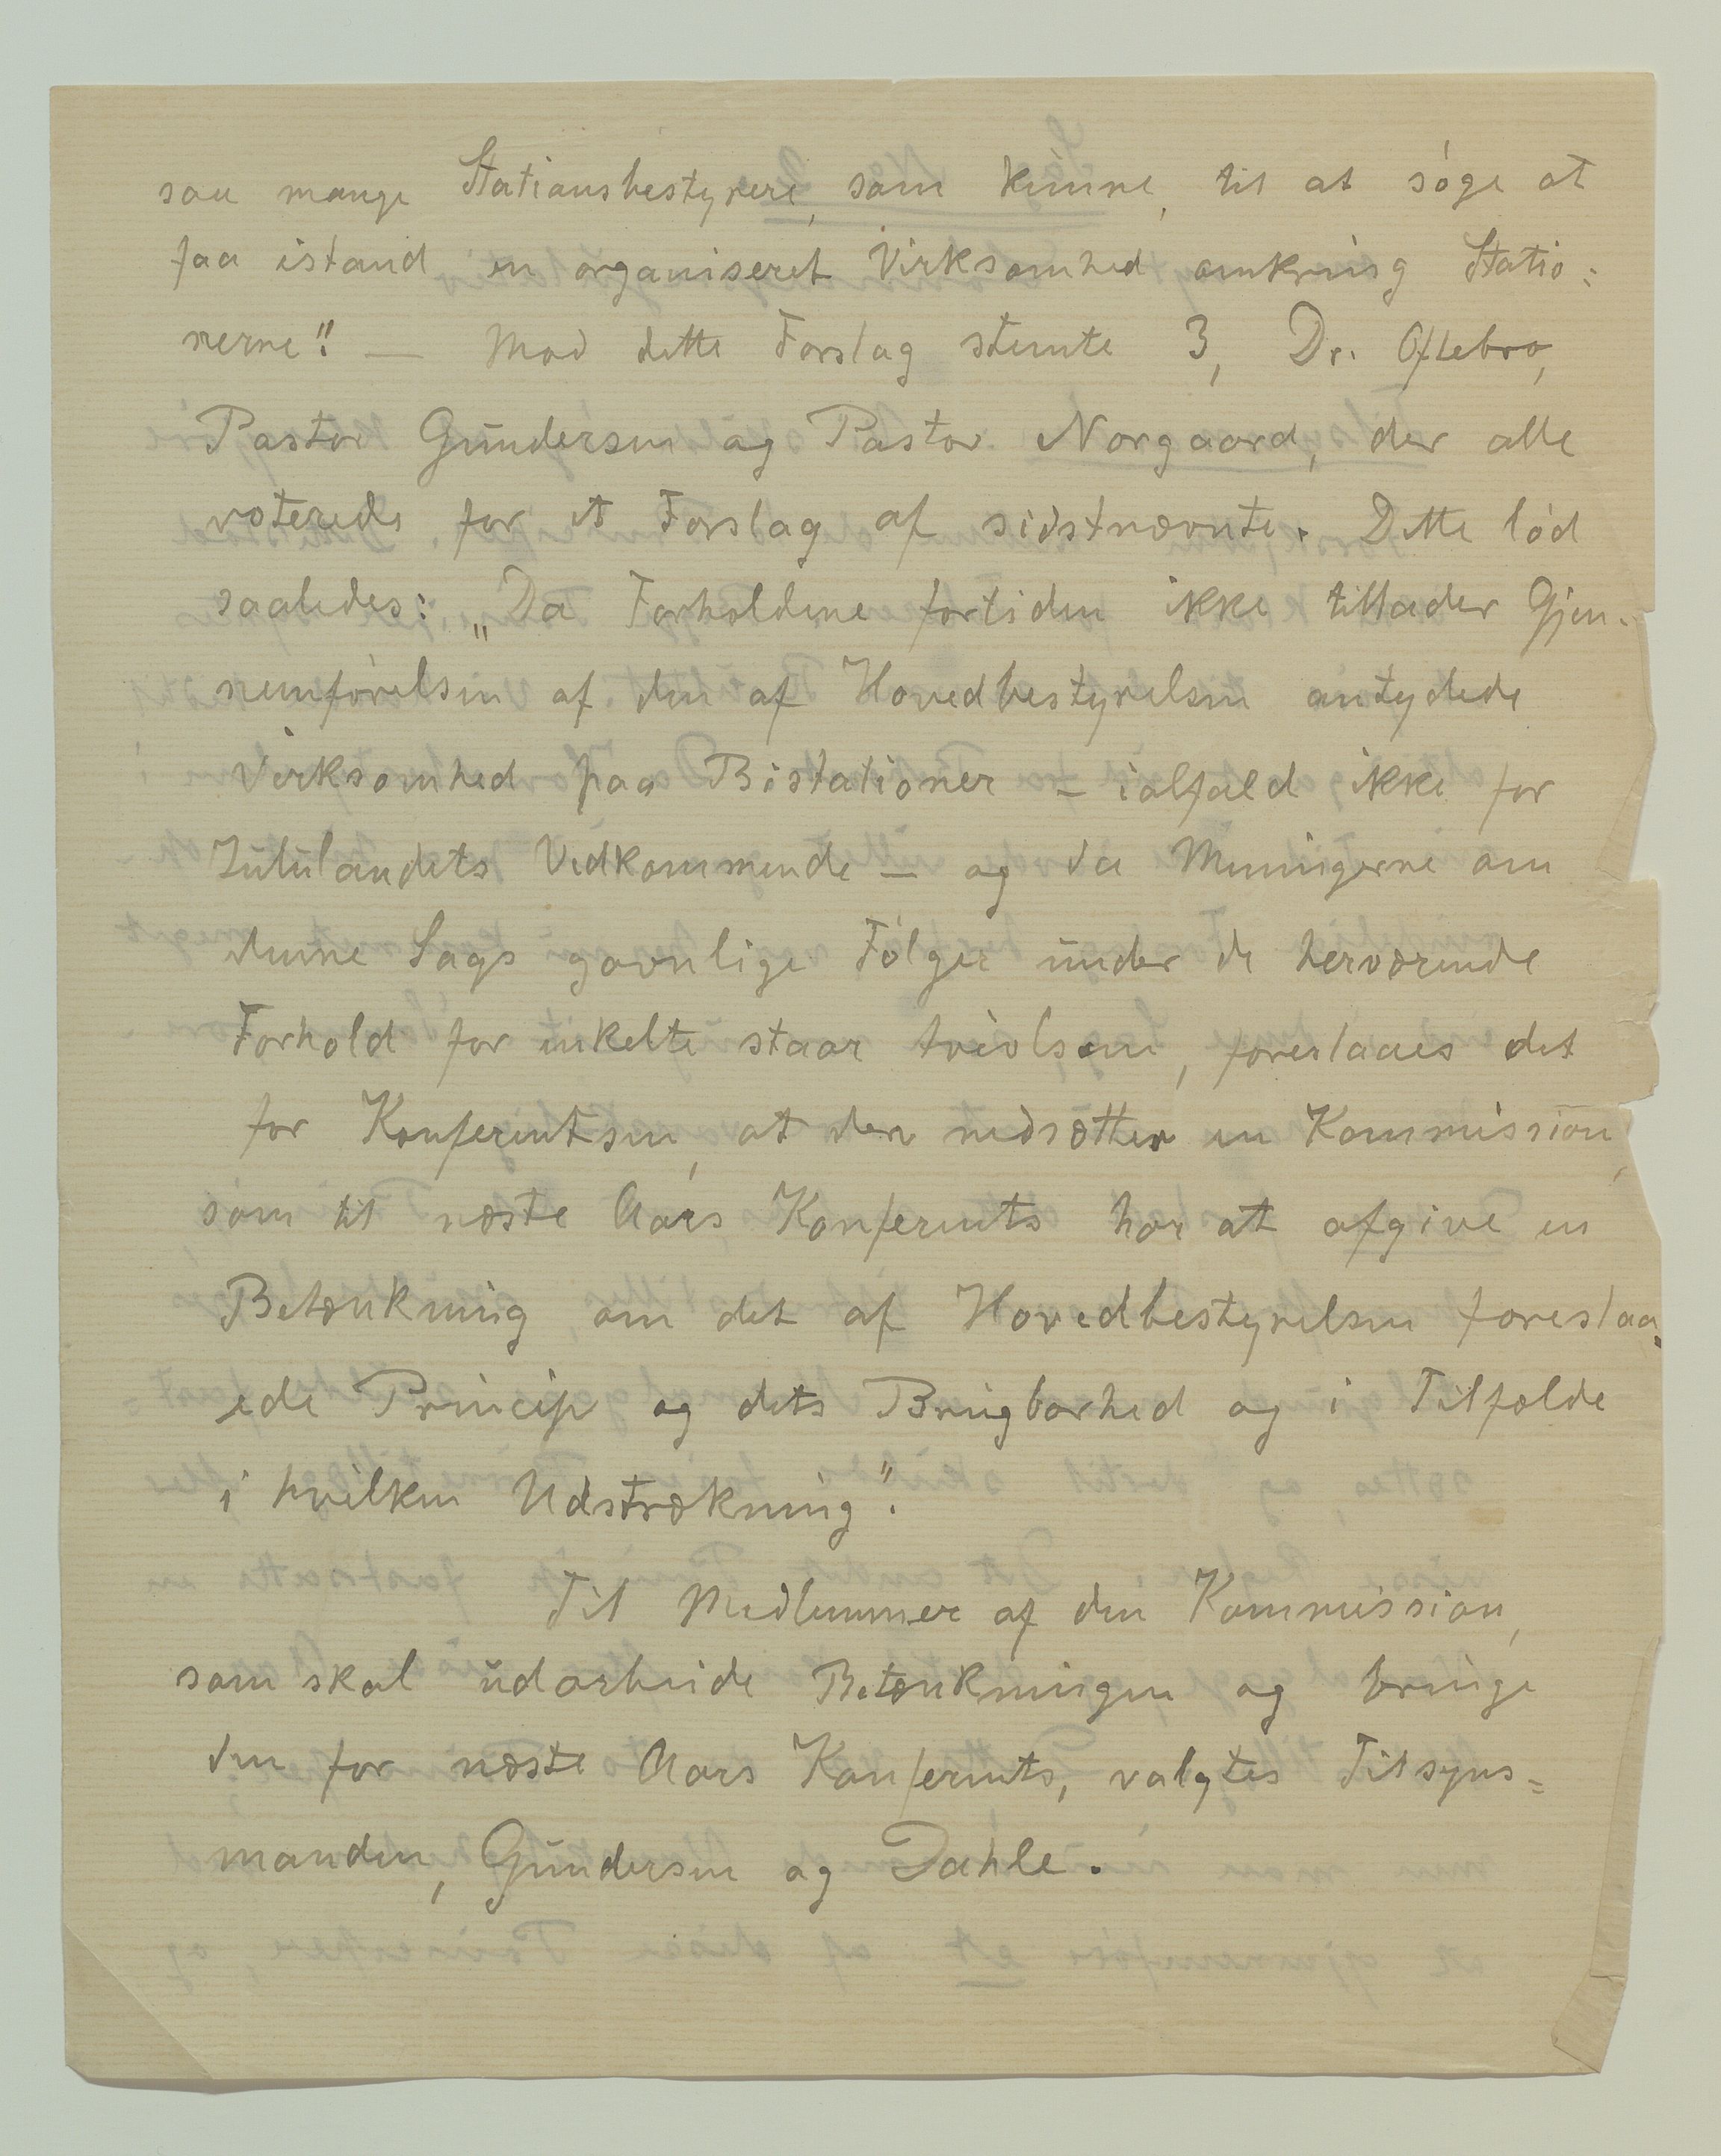 saa mange Stationsbestyrere, som kunne, til at søge at
faa istand en organiseret Virksomhed omkring Statio:
nerne". — Mod dette Forslag stemte 3, Dr. Oftebro,
Pastor Gundersen og Pastor Norgaard, der alle
voterede for et Forslag af sidstnævnte. Dette lød
saaledes: „Da Forholdene fortiden ikke tillader Gjen-
nemførelsen af den af Hovedbestyrelsen antydede
Virksomhed paa Bistationer – ialfald ikke for
Zululandets Vedkommende — og da Meningerne om
denne Sags gavnlige Følger under de herværende
Forhold for enkelte staar tvivlsom, foreslaaes det
for Konferentsen, at den nedsætter en Kommission,
som til næste Aars Konferents har at afgive en
Betænkning om det af Hovedbestyrelsen foreslaa=
ede Princip og dets Brugbarhed og i Tilfælde
i hvilken Udstrækning".
Til Medlemmer af den Kommission,
som skal udarbeide Betænkningen og bringe
den for næste Aars Konferents, valgtes Tilsyns=
manden, Gundersen og Dahle.